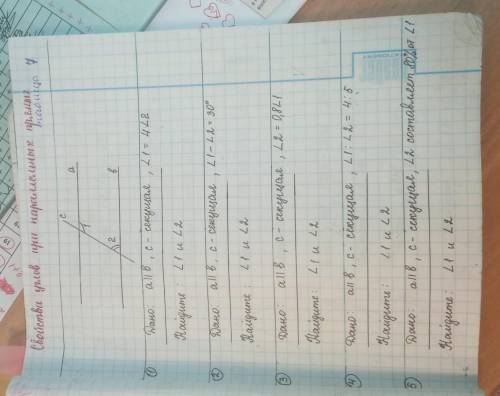 Свойства углов при параллельных прямых
Таблица 7
c
a
1
2
в
① Дано: a || в, c - секущая, ∠1 = 4∠2
Найдите: ∠1 и ∠2
② Дано: a || в, c - секущая, ∠1 - ∠2 = 30°
Найдите: ∠1 и ∠2
③ Дано: a || в, c - секущая, ∠2 = 0,8∠1
Найдите: ∠1 и ∠2
④ Дано: a || в, c - секущая, ∠1 : ∠2 = 4 : 5
Найдите: ∠1 и ∠2
⑤ Дано: a || в, c - секущая, ∠2 составляет 80% от ∠1
Найдите: ∠1 и ∠2